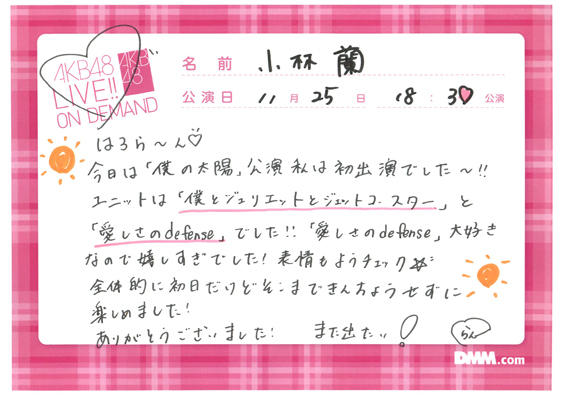 AKB48
LIVE!!
ON DEMAND
AKB
48
名前 小林 蘭
公演日 11月25日 18:30公演
はろら〜ん♡
今日は「僕の太陽」公演私は初出演でした〜!!
ユニットは「僕とジュリエットとジェットコースター」と
「愛しさのdefense」でした!!「愛しさのdefense」大好き
なので嬉しすぎでした!表情もようチェック
全体的に初日だけどそこまできんちょうせずに
楽しめました!
ありがとうございました! また出たい!
らん
DMM.com